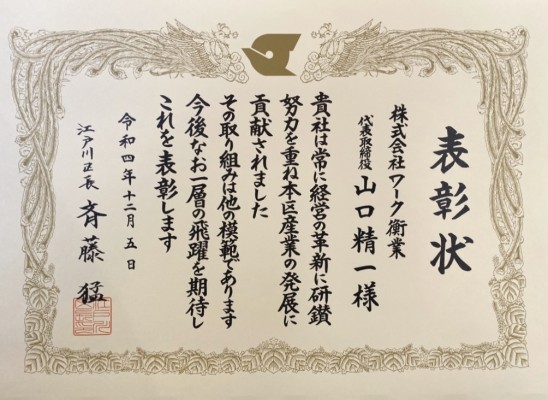 表彰状
株式会社ワーク衡業
代表取締役 山口精一様
貴社は常に経営の革新に研鑚
努力を重ね本区産業の発展に
貢献されました
その取り組みは他の模範であります
今後なお一層の飛躍を期待し
これを表彰します
令和四年十二月五日
江戸川区長 斉藤猛